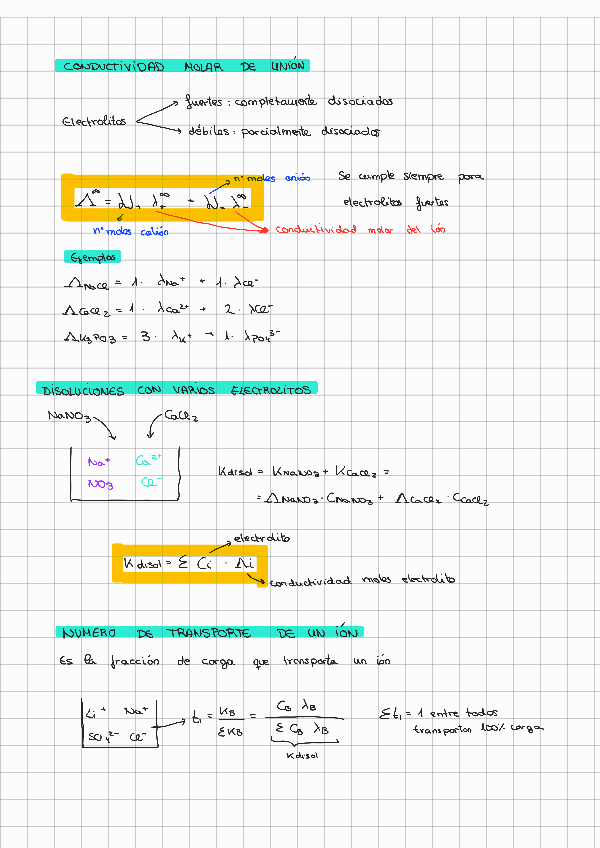 CONDUCTIVIDAD MOLAR DE UNIÓN
Electrolitos
fuertes: completamente disociados
débiles: parcialmente disociados
nº moles anión
Λ^∞ = ν₊ λ₊^∞ + ν₋ λ₋^∞
nº moles catión
conductividad molar del ión
Se cumple siempre para
electrolitos fuertes
Ejemplos
Λ_NaCl = 1 · λ_Na⁺ + 1 · λ_Cl⁻
Λ_CaCl₂ = 1 · λ_Ca²⁺ + 2 · λ_Cl⁻
Λ_K₃PO₃ = 3 · λ_K⁺ + 1 · λ_PO₄³⁻
DISOLUCIONES CON VARIOS ELECTROLITOS
NaNO₃ CaCl₂
Na⁺ Ca²⁺
NO₃ Cl⁻
K disol = K_NaNO₃ + K_CaCl₂ =
= Λ_NaNO₃ · C_NaNO₃ + Λ_CaCl₂ · C_CaCl₂
electrolito
K disol = Σ Ci · Λi
conductividad moles electrolito
NUMERO DE TRANSPORTE DE UN IÓN
Es la fracción de carga que transporta un ión
Li⁺ Na⁺
SO₄²⁻ Cl⁻
t₁ = K_B / ΣK_B = C_B λ_B / Σ C_B λ_B
K disol
Σt₁ = 1 entre todos
transportan 100% carga